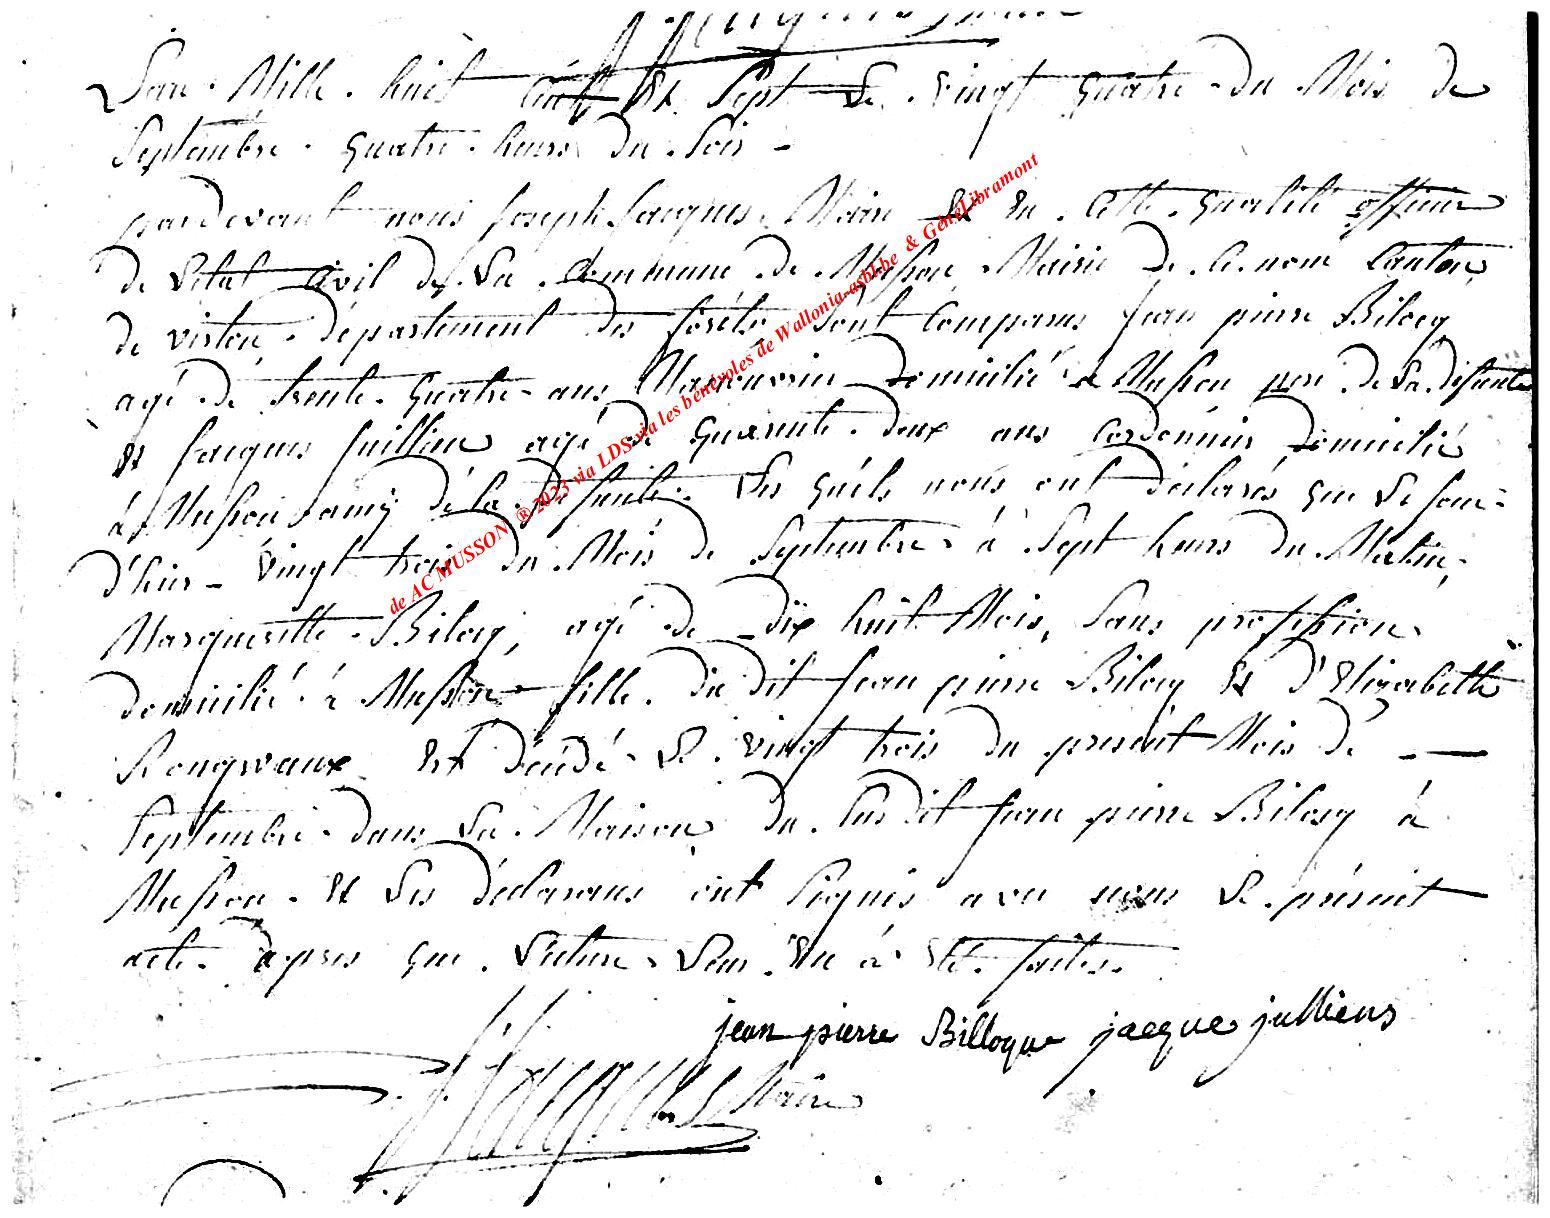 L'an Mille huit Cent Et Sept Le vingt quatre du Mois de
Septembre quatre heures du Soir -
pardevant nous Joseph Jacques Maire Et En Cette qualité officier
de L'etat Civil de La Commune de Musson Mairie de Ce nom Canton
de virton département des forêts Sont Comparus Jean pierre Bilocq
agé de trente quatre ans Manouvrier domicilié a Musson pere de La défunte
Et Jacques Juillien agé de quarente deux ans Cordonnier domicilié
à Musson amÿ dé la défunte Les quéls nous ont déclarés que Le jour
d'hier - vingt trois du Mois de Septembre à Sept heures du Matin,
Margueritte Bilocq, agé de dix huit Mois, Sans profession
domicilié à Musson fille du dit Jean pierre Bilocq Et D'Elizabeth
Rongvaux Est décédé Le vingt trois du présent Mois dé -
Septembre dans La Maison du Susdit Jean pierre Bilocq à
Musson Et Les déclarans ont Signés avec nous Le présent
acte àpres que Lecture Leur En à Eté faites.
jean pierre Billoque jacque julliens
J. Jacques Maire
de AC MUSSON ® 2023 via LDS via les bénévoles de Wallonia-asbl.be & GénéLibramont